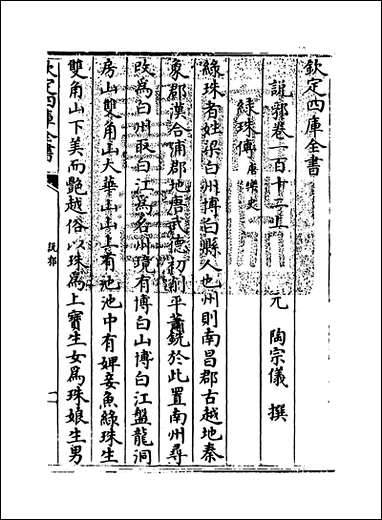 欽定四庫全書
說郛卷一百十二上
元 陶宗儀 撰
緑珠傳 唐樂史
緑珠者姓梁白州博白縣人也州則南昌郡古越地秦
象郡漢合浦郡地唐武德初削平蕭銑於此置南州尋
改為白州取白江為名州境有博白山博白江盤龍洞
房山雙角山大華山山上有池池中有婢妾魚緑珠生
雙角山下美而艶越俗以珠為上寳生女為珠娘生男
欽定四庫全書
說郛
一